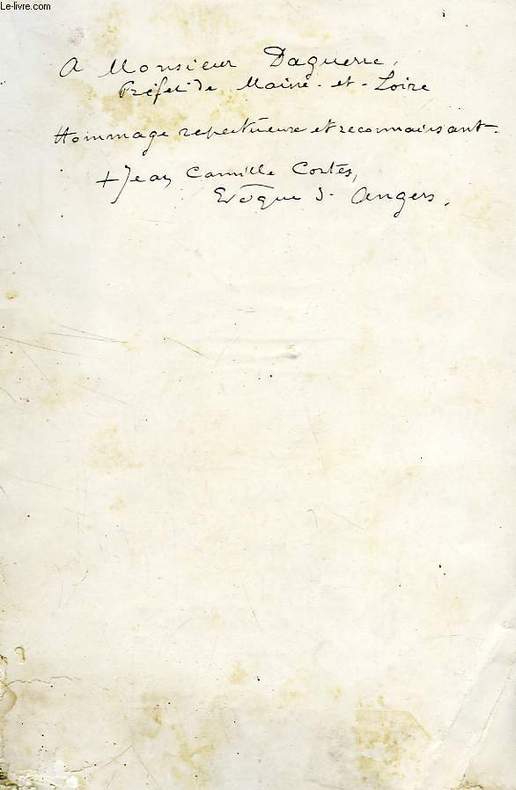 Le-livre.com
A Monsieur Daguerre,
Préfet de Maine-et-Loire
Hommage respectueux et reconnaissant.
+ Jean Camille Costes,
Evêque d'Angers.